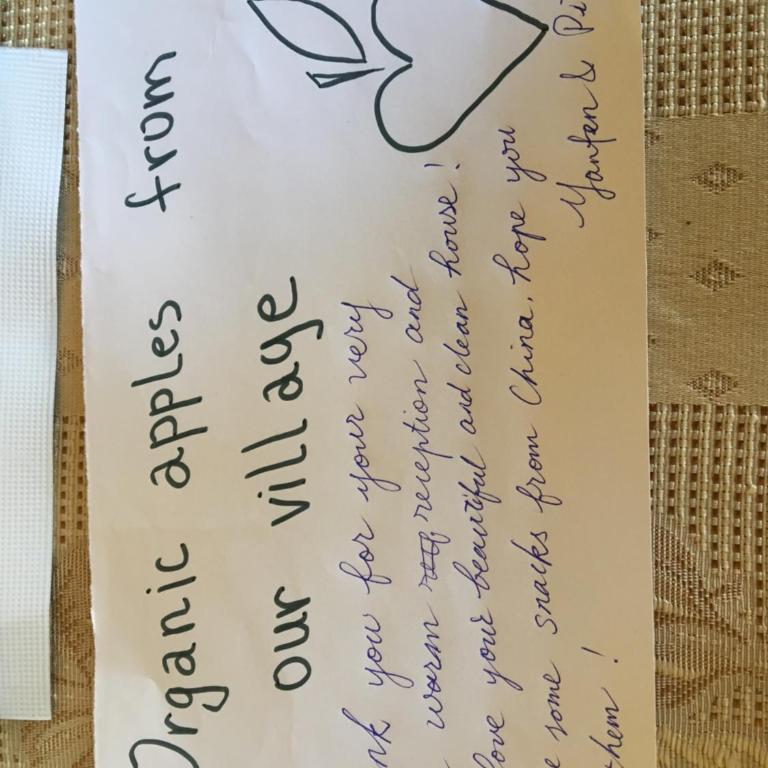 Organic apples from
our village
nk you for your very
warm reception and
love your beautiful and clean house!
e some snacks from China, hope you
them!
Yanfen & Pi